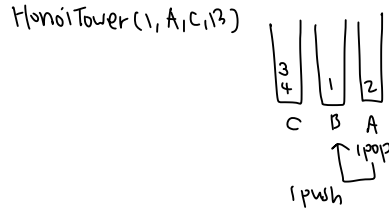 HonoiTower(1, A, C, B)
3
4 1 2
C B A
1pop
1push